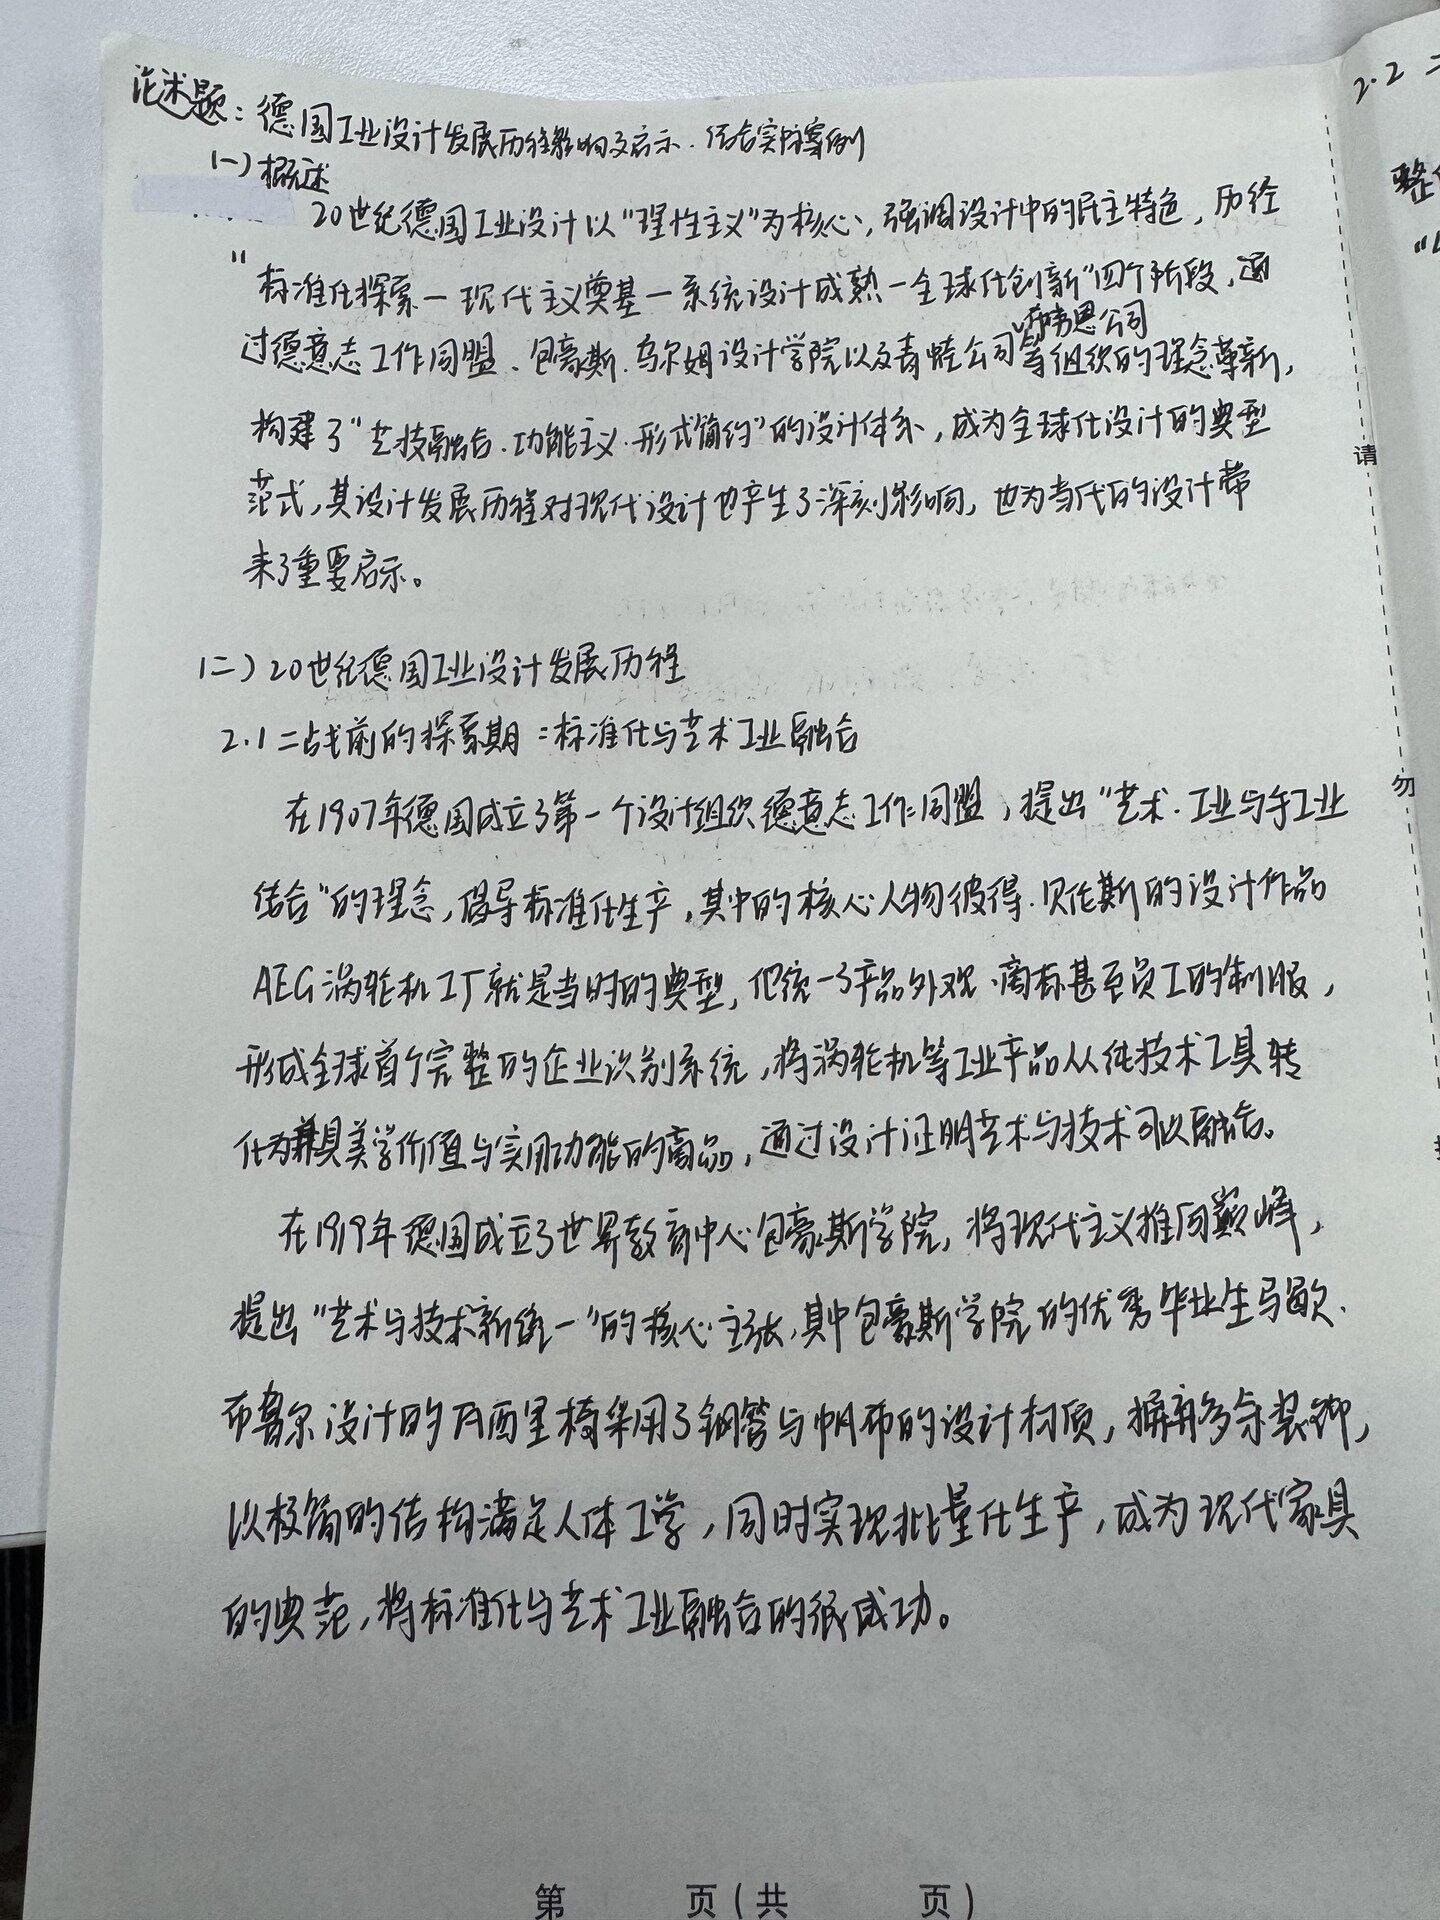 论述题：德国工业设计发展历程影响及启示.结合实际案例
(一)概述
20世纪德国工业设计以"理性主义"为核心，强调设计中的民主特色，历经
"标准化探索—现代主义奠基—系统设计成熟—全球化创新"四个阶段，通
布劳恩公司
过德意志工作同盟、包豪斯.乌尔姆设计学院以及青蛙公司等组织的理念革新，
构建了"艺技融合.功能主义.形式简约"的设计体系，成为全球化设计的典型
范式，其设计发展历程对现代设计也产生了深刻影响，也为当代的设计带
来了重要启示。
(二)20世纪德国工业设计发展历程
2.1二战前的探索期：标准化与艺术工业融合
在1907年德国成立了第一个设计组织德意志工作同盟，提出"艺术.工业与手工业
结合"的理念，倡导标准化生产，其中的核心人物彼得.贝伦斯的设计作品
AEG涡轮机工厂就是当时的典型，他统一了产品外观、商标甚至员工的制服，
形成全球首个完整的企业识别系统，将涡轮机等工业产品从纯技术工具转
化为兼具美学价值与实用功能的商品，通过设计证明艺术与技术可以融合。
在1919年德国成立了世界教育中心包豪斯学院，将现代主义推向巅峰，
提出"艺术与技术新统一"的核心主张，其中包豪斯学院的优秀毕业生马歇.
布鲁尔设计的瓦西里椅采用了钢管与帆布的设计材质，摒弃多余装饰，
以极简的结构满足人体工学，同时实现批量化生产，成为现代家具
的典范，将标准化与艺术工业融合的很成功。
第 页(共 页)
2.2 二
整
请
勿